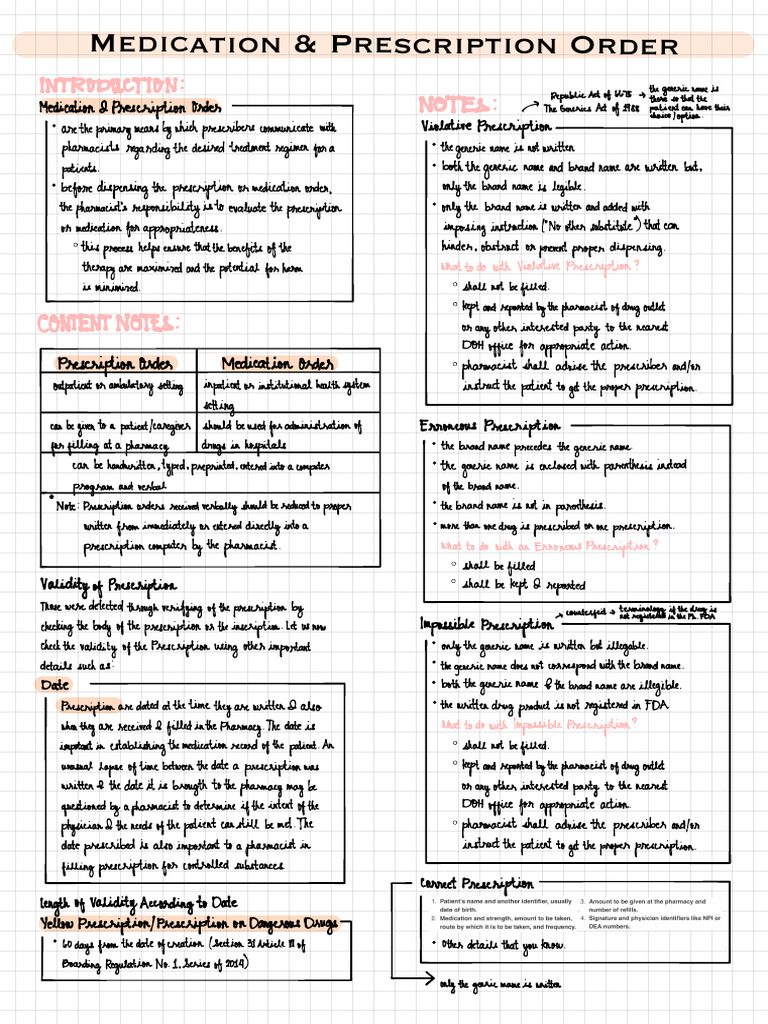 MEDICATION & PRESCRIPTION ORDER
INTRODUCTION:
Medication & Prescription Order
• are the primary means by which prescribers communicate with
pharmacists regarding the desired treatment regimen for a
patients.
• before dispensing the prescription or medication order,
the pharmacist's responsibility is to evaluate the prescription
or medication for appropriateness.
○ this process helps ensure that the benefits of the
therapy are maximized and the potential for harm
is minimized.
CONTENT NOTES:
Prescription Order
Medication Order
outpatient or ambulatory setting
inpatient or institutional health system
setting
can be given to a patient/caregiver
for filling at a pharmacy
should be used for administration of
drugs in hospitals
can be handwritten, typed, preprinted, entered into a computer
program and verbal
• Note: Prescription orders received verbally should be reduced to proper
written from immediately or entered directly into a
prescription computer by the pharmacist.
Validity of Prescription
Those were detected through verifying of the prescription by
checking the body of the prescription or the inscription. Let us now
check the validity of the Prescription using other important
details such as:
Date
Prescription are dated at the time they are written & also
when they are received & filled in the Pharmacy. The date is
important in establishing the medication record of the patient. An
unusual lapse of time between the date a prescription was
written & the date it is brought to the pharmacy may be
questioned by a pharmacist to determine if the intent of the
physician & the needs of the patient can still be met. The
date prescribed is also important to a pharmacist in
filling prescription for controlled substances
length of Validity According to Date
Yellow Prescription/Prescription on Dangerous Drugs
• 60 days from the date of creation (Section 31 Article III of
Boarding Regulation No. 1, Series of 2014)
NOTES:
Republic Act of 6675
The Generics Act of 1988
the generic name is
there so that the
patient can have their
choice/option.
Violative Prescription
• the generic name is not written
• both the generic name and brand name are written but,
only the brand name is legible.
• only the brand name is written and added with
imposing instruction ("No other substitute") that can
hinder, obstruct or prevent proper dispensing.
What to do with Violative Prescription?
○ shall not be filled.
○ kept and reported by the pharmacist of drug outlet
or any other interested party to the nearest
DOH office for appropriate action.
○ pharmacist shall advise the prescriber and/or
instruct the patient to get the proper prescription.
Erroneous Prescription
• the brand name precedes the generic name.
• the generic name is enclosed with parenthesis instead
of the brand name.
• the brand name is not in parenthesis.
• more than one drug is prescribed on one prescription.
What to do with an Erroneous Prescription?
○ shall be filled
○ shall be kept & reported
Impossible Prescription
counterfeit
terminology if the drug is
not registered in the Ph. FDA
• only the generic name is written but illegable.
• the generic name does not correspond with the brand name.
• both the generic name & the brand name are illegible.
• the written drug product is not registered in FDA
What to do with Impossible Prescription?
○ shall not be filled.
○ kept and reported by the pharmacist of drug outlet
or any other interested party to the nearest
DOH office for appropriate action.
○ pharmacist shall advise the prescriber and/or
instruct the patient to get the proper prescription.
Correct Prescription
1. Patient's name and another identifier, usually
date of birth.
2. Medication and strength, amount to be taken,
route by which it is to be taken, and frequency.
3. Amount to be given at the pharmacy and
number of refills.
4. Signature and physician identifiers like NPI or
DEA numbers.
• Other details that you know.
only the generic name is written